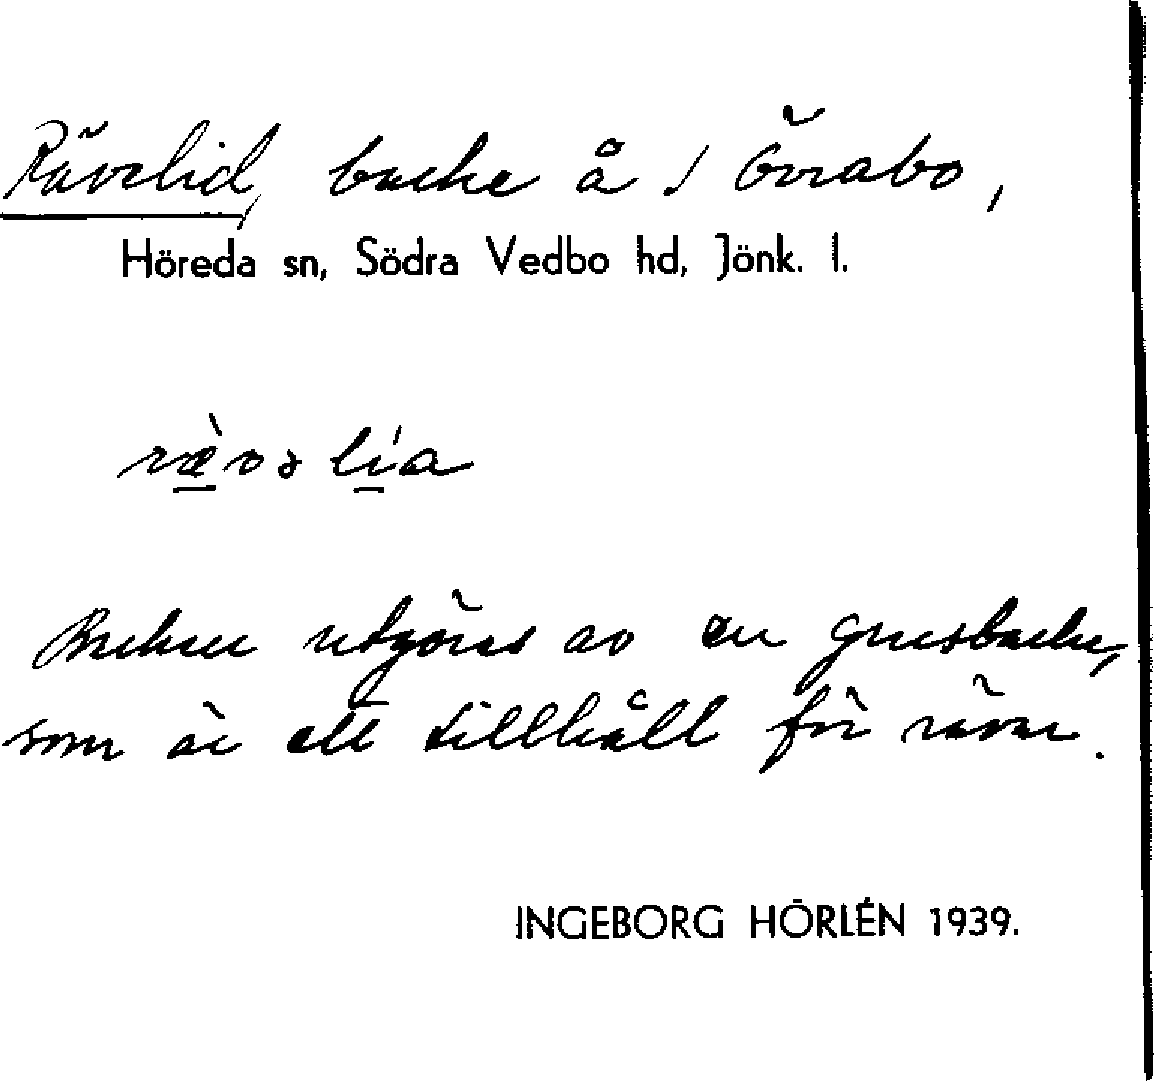 Rävelid, backe å 1 Övrabo,
Höreda sn, Södra Vedbo hd, Jönk. l.
Backen utgöres av en grusbacke,
som är ett tillhåll för rävar.
INGEBORG HÖRLÉN 1939.